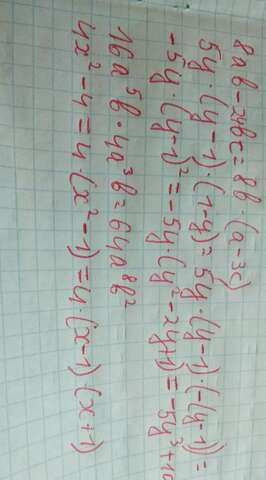 8ab - = 8b · (a - 3c)
5y · (y - 1) · (1 - y) = 5y · (y - 1) · (-(y - 1)) =
-5y · (y - 1)² = -5y · (y² - 2y + 1) = -5y³ + 10
16a⁵b · 4a³b = 64a⁸b²
4x² - 4 = 4 · (x² - 1) = 4 · (x - 1) · (x + 1)